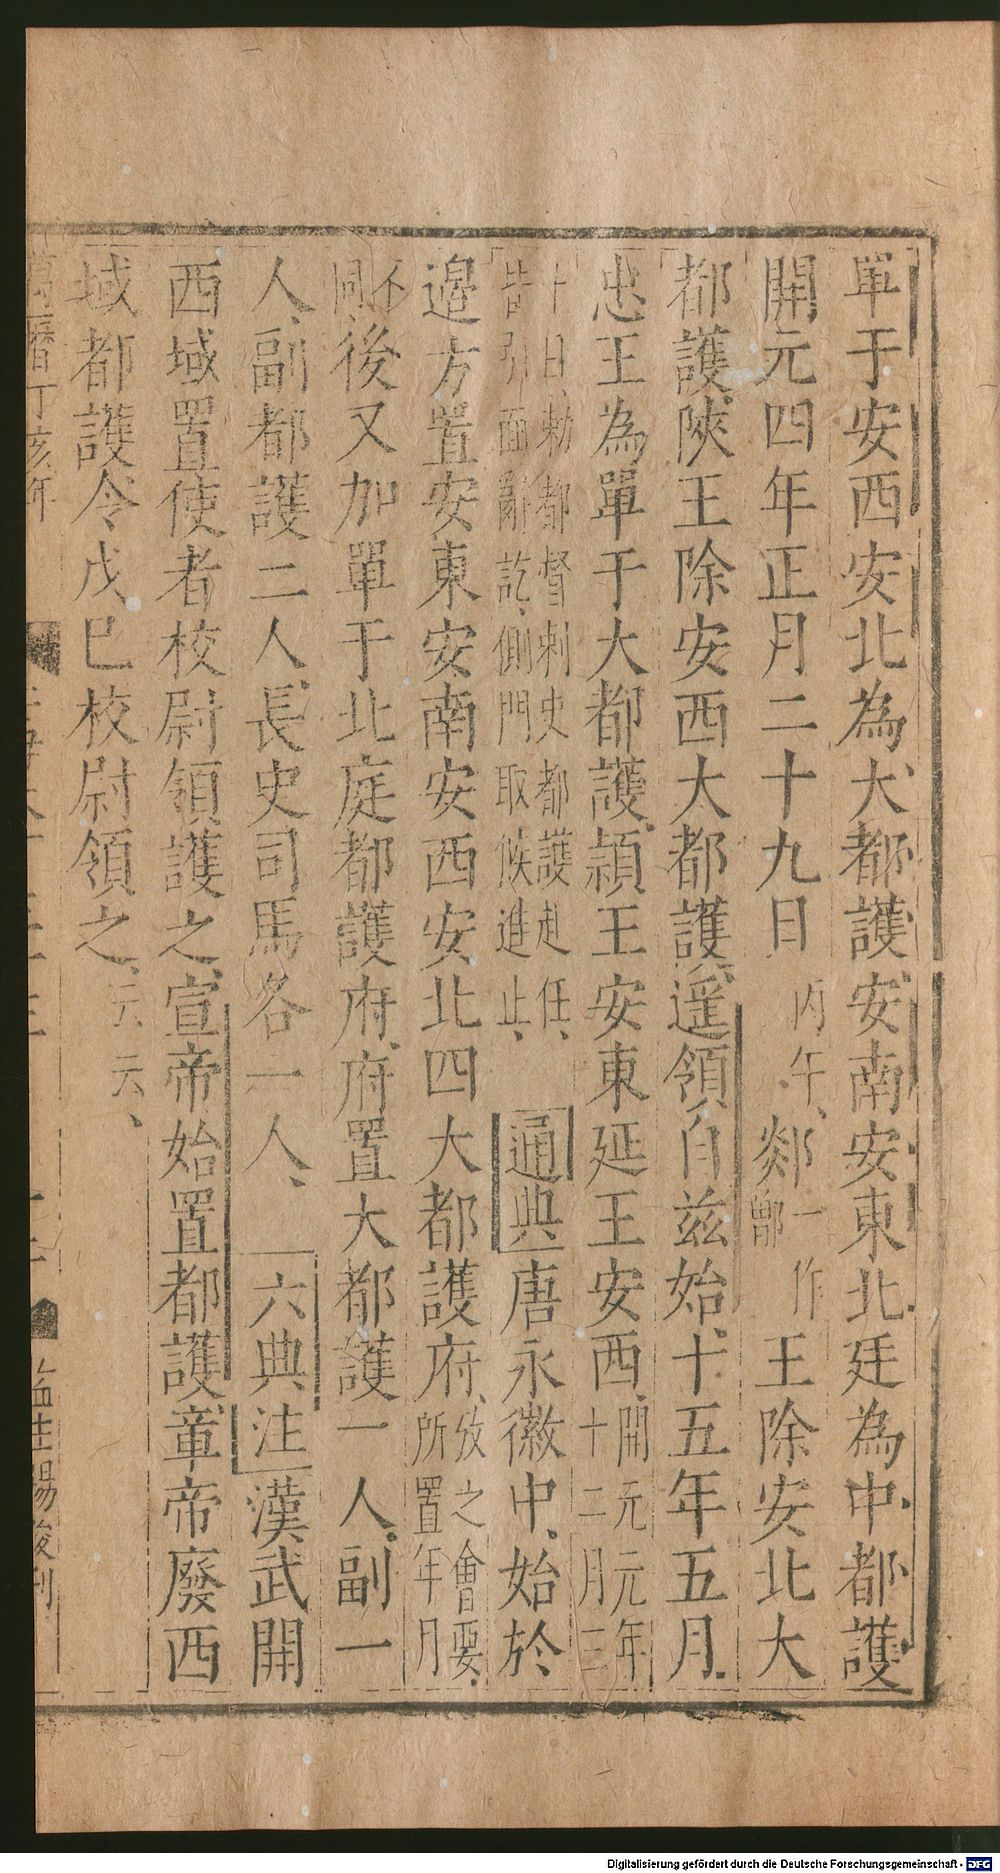 單于安西安北為大都護安南安東北廷為中都護
開元四年正月二十九日丙午郯一作鄫王除安北大
都護陝王除安西大都護遥領自兹始十五年五月
忠王為單于大都護頴王安東延王安西開元元年十二月三
十日勅都督刺史都護赴任皆引面辭訖側門取候進止通典唐永徽中始於
邉方置安東安南安西安北四大都護府攷之會要所置年月
不同後又加單于北庭都護府府置大都護一人副一
人副都護二人長史司馬各一人六典注漢武開
西域置使者校尉領護之宣帝始置都護章帝廢西
域都護令戊巳校尉領之云云
萬曆丁亥年
Digitalisierung gefördert durch die Deutsche Forschungsgemeinschaft - DFG